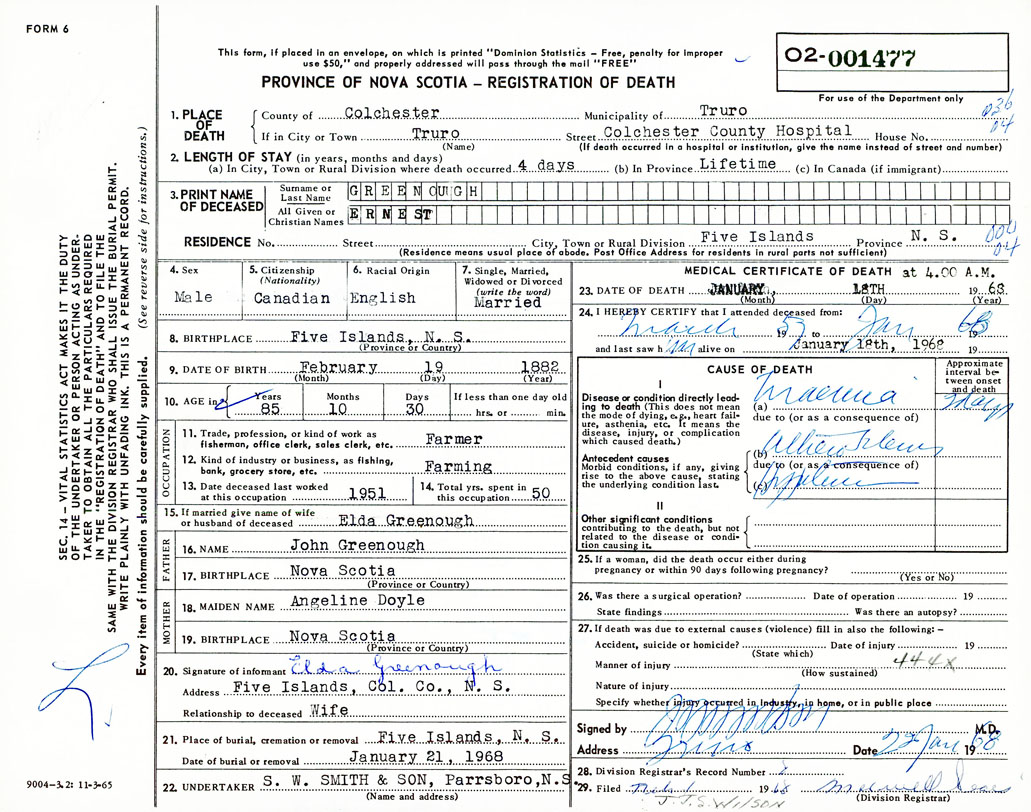 FORM 6
This form, if placed in an envelope, on which is printed "Dominion Statistics – Free, penalty for improper
use $50," and properly addressed will pass through the mail "FREE"
PROVINCE OF NOVA SCOTIA – REGISTRATION OF DEATH
02-001477
For use of the Department only
036
04
1. PLACE OF DEATH
County of Colchester Municipality of Truro
If in City or Town Truro Street Colchester County Hospital House No.
(Name) (If death occurred in a hospital or institution, give the name instead of street and number)
2. LENGTH OF STAY (in years, months and days)
(a) In City, Town or Rural Division where death occurred 4 days (b) In Province Lifetime (c) In Canada (if immigrant)
3. PRINT NAME OF DECEASED
Surname or Last Name GREENOUGH
All Given or Christian Names ERNEST
RESIDENCE No. Street City, Town or Rural Division Five Islands Province N. S.
004
04
(Residence means usual place of abode. Post Office Address for residents in rural parts not sufficient)
4. Sex
Male
5. Citizenship
(Nationality)
Canadian
6. Racial Origin
English
7. Single, Married,
Widowed or Divorced
(write the word)
Married
8. BIRTHPLACE Five Islands, N. S.
(Province or Country)
9. DATE OF BIRTH February 19 1882
(Month) (Day) (Year)
10. AGE in
Years Months Days If less than one day old
85 10 30 hrs. or min.
OCCUPATION
11. Trade, profession, or kind of work as
fisherman, office clerk, sales clerk, etc. Farmer
12. Kind of industry or business, as fishing,
bank, grocery store, etc. Farming
13. Date deceased last worked
at this occupation 1951
14. Total yrs. spent in
this occupation 50
15. If married give name of wife
or husband of deceased Elda Greenough
FATHER
16. NAME John Greenough
17. BIRTHPLACE Nova Scotia
(Province or Country)
MOTHER
18. MAIDEN NAME Angeline Doyle
19. BIRTHPLACE Nova Scotia
(Province or Country)
20. Signature of informant Elda Greenough
Address Five Islands, Col. Co., N. S.
Relationship to deceased Wife
21. Place of burial, cremation or removal Five Islands, N. S.
Date of burial or removal January 21, 1968
22. UNDERTAKER S. W. SMITH & SON, Parrsboro, N.S
(Name and address)
MEDICAL CERTIFICATE OF DEATH at 4.00 A.M.
23. DATE OF DEATH JANUARY, 18TH 1968
(Month) (Day) (Year)
24. I HEREBY CERTIFY that I attended deceased from:
March 1953 to Jan 1968
and last saw him alive on January 18th, 1968 19
CAUSE OF DEATH
Approximate
interval be-
tween onset
and death
I
Disease or condition directly lead-
ing to death (This does not mean
the mode of dying, e.g., heart fail-
ure, asthenia, etc. It means the
disease, injury, or complication
which caused death.)
(a) Uraemia
due to (or as a consequence of)
Antecedent causes
Morbid conditions, if any, giving
rise to the above cause, stating
the underlying condition last.
(b)
due to (or as a consequence of)
(c)
II
Other significant conditions
contributing to the death, but not
related to the disease or condi-
tion causing it.
25. If a woman, did the death occur either during
pregnancy or within 90 days following pregnancy?
(Yes or No)
26. Was there a surgical operation? Date of operation 19
State findings Was there an autopsy?
27. If death was due to external causes (violence) fill in also the following: –
Accident, suicide or homicide? Date of injury 19
(State which)
444X
Manner of injury
(How sustained)
Nature of injury
Specify whether injury occurred in Industry, in home, or in public place
Signed by M.D.
Address Truro Date 22 Jan 1968
28. Division Registrar's Record Number
*29. Filed Feb. 1 1968
(Division Registrar)
J.J.S. WILSON
SEC. 14 – VITAL STATISTICS ACT MAKES IT THE DUTY
OF THE UNDERTAKER OR PERSON ACTING AS UNDER-
TAKER TO OBTAIN ALL THE PARTICULARS REQUIRED
IN THE "REGISTRATION OF DEATH" AND TO FILE THE
SAME WITH THE DIVISION REGISTRAR WHO SHALL ISSUE BURIAL PERMIT.
WRITE PLAINLY WITH UNFADING INK. THIS IS A PERMANENT RECORD.
Every item of information should be carefully supplied. (See reverse side for instructions.)
9004-3.2: 11-3-65